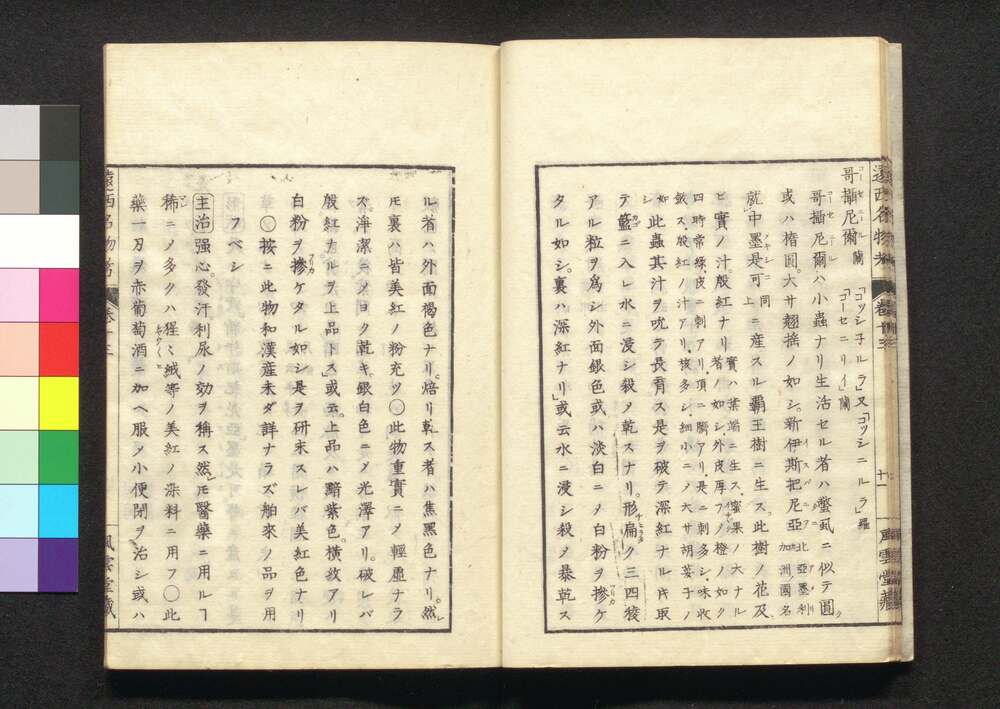 遠西名物考 卷十三 十一 風雲堂藏
哥攝尼爾 コーセニール 蘭 「コッシ子ルラ」又「コッシニルラ」羅
「コーセニリイ」蘭
哥攝尼爾ハ小蟲ナリ生活セル者ハ螯虱ニ似テ圓ク
或ハ楕圓大サ翹搖ノ如シ。新伊斯把尼亞 北亞墨利加洲ノ國名
就中墨是可 同上 ニ産スル覇王樹ニ生ス此樹ノ花及
ビ實ノ汁殷紅ナリ 實ハ葉端ニ生ス、蜜果ノ大ナル者ノ如シ外皮厚フ〆橙ノ如ク
四時常緑、皮ニ刺アリ、頂ニ臍アリ、是ニ刺多シ、味收
斂ス、殷紅ノ汁アリ、核多シ、細小ニ〆大サ胡荽子ノ
如シ 此蟲其汁ヲ吮ヲ長育ス是ヲ破テ深紅ナルヲ取
テ籃ニ入レ水ニ浸シ殺〆乾スナリ。形扁ク三四稜
アル粒ヲ爲シ外面銀色或ハ淡白ニ〆白粉ヲ摻ケ
タル如シ。裏ハ深紅ナリ」或云水ニ浸シ殺〆暴乾ス
ル者ハ外面褐色ナリ。焙リ乾ス者ハ焦黑色ナリ。然
モ裏ハ皆美紅ノ粉充ツ〇此物重實ニ〆輕虛ナラ
ズ。淨潔ニ〆ヨク乾キ。銀白色ニ〆光澤アリ。破レバ
殷紅ナルヲ上品トス」或云。上品ハ黯紫色。横紋アリ
白粉ヲ摻ケタル如シ是ヲ研末スレバ美紅色ナリ
〇按ニ此物和漢産未ダ詳ナラズ舶來ノ品ヲ用
フベシ
主治 强心。發汗利尿ノ効ヲ稱ス然モ醫藥ニ用ルヿ
稀ニ〆多クハ猩々絨等ノ美紅ノ染料ニ用フ〇此
藥一刄ヲ赤葡萄酒ニ加ヘ服〆小便閉ヲ治シ或ハ
遠西名物考 卷十三 風雲堂藏